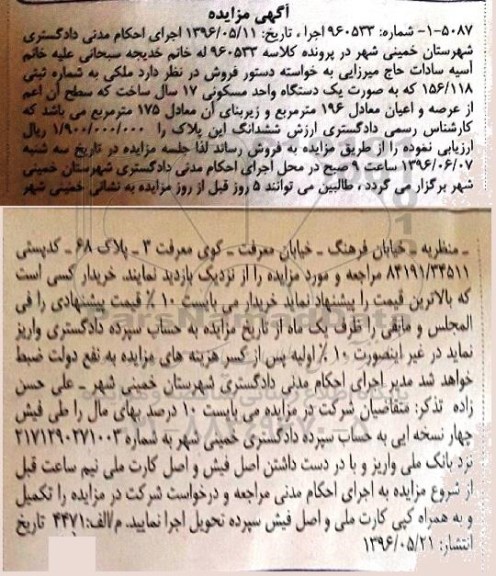 آگهی مزایده
۵۰۸۷-۱- شماره: ۹۶۰۵۳۳ اجرا ، تاریخ: ۱۳۹۶/۰۵/۱۱ اجرای احکام مدنی دادگستری
شهرستان خمینی شهر در پرونده کلاسه ۹۶۰۵۳۳ له خانم خدیجه سبحانی علیه خانم
آسیه سادات حاج میرزایی به خواسته دستور فروش در نظر دارد ملکی به شماره ثبتی
۱۵۶/۱۱۸ که به صورت یک دستگاه واحد مسکونی ۱۷ سال ساخت که سطح آن اعم
از عرصه و اعیان معادل ۱۹۶ مترمربع و زیربنای آن معادل ۱۷۵ مترمربع می باشد که
کارشناس رسمی دادگستری ارزش ششدانگ این پلاک را ۱/۹۰۰/۰۰۰/۰۰۰ ریال
ارزیابی نموده را از طریق مزایده به فروش رساند لذا جلسه مزایده در تاریخ سه شنبه
۱۳۹۶/۰۶/۰۷ ساعت ۹ صبح در محل اجرای احکام مدنی دادگستری شهرستان خمینی
شهر برگزار می گردد ، طالبین می توانند ۵ روز قبل از روز مزایده به نشانی خمینی شهر
ـ منظریه ـ خیابان فرهنگ ـ خیابان معرفت ـ کوی معرفت ۳ ـ پلاک ۶۸ ـ کدپستی
۸۴۱۹۱/۳۴۵۱۱ مراجعه و مورد مزایده را از نزدیک بازدید نمایند. خریدار کسی است
که بالاترین قیمت را پیشنهاد نماید خریدار می بایست ۱۰ ٪ قیمت پیشنهادی را فی
المجلس و مابقی را ظرف یک ماه از تاریخ مزایده به حساب سپرده دادگستری واریز
نماید در غیر اینصورت ۱۰ ٪ اولیه پس از کسر هزینه های مزایده به نفع دولت ضبط
خواهد شد مدیر اجرای احکام مدنی دادگستری شهرستان خمینی شهر ـ علی حسن
زاده تذکر: متقاضیان شرکت در مزایده می بایست ۱۰ درصد بهای مال را طی فیش
چهار نسخه ایی به حساب سپرده دادگستری خمینی شهر به شماره ۲۱۷۱۲۹۰۲۷۱۰۰۳
نزد بانک ملی واریز و با در دست داشتن اصل فیش و اصل کارت ملی نیم ساعت قبل
از شروع مزایده به اجرای احکام مدنی مراجعه و درخواست شرکت در مزایده را تکمیل
و به همراه کپی کارت ملی و اصل فیش سپرده تحویل اجرا نمایید. م/الف:۴۴۷۱ تاریخ
انتشار: ۱۳۹۶/۰۵/۲۱